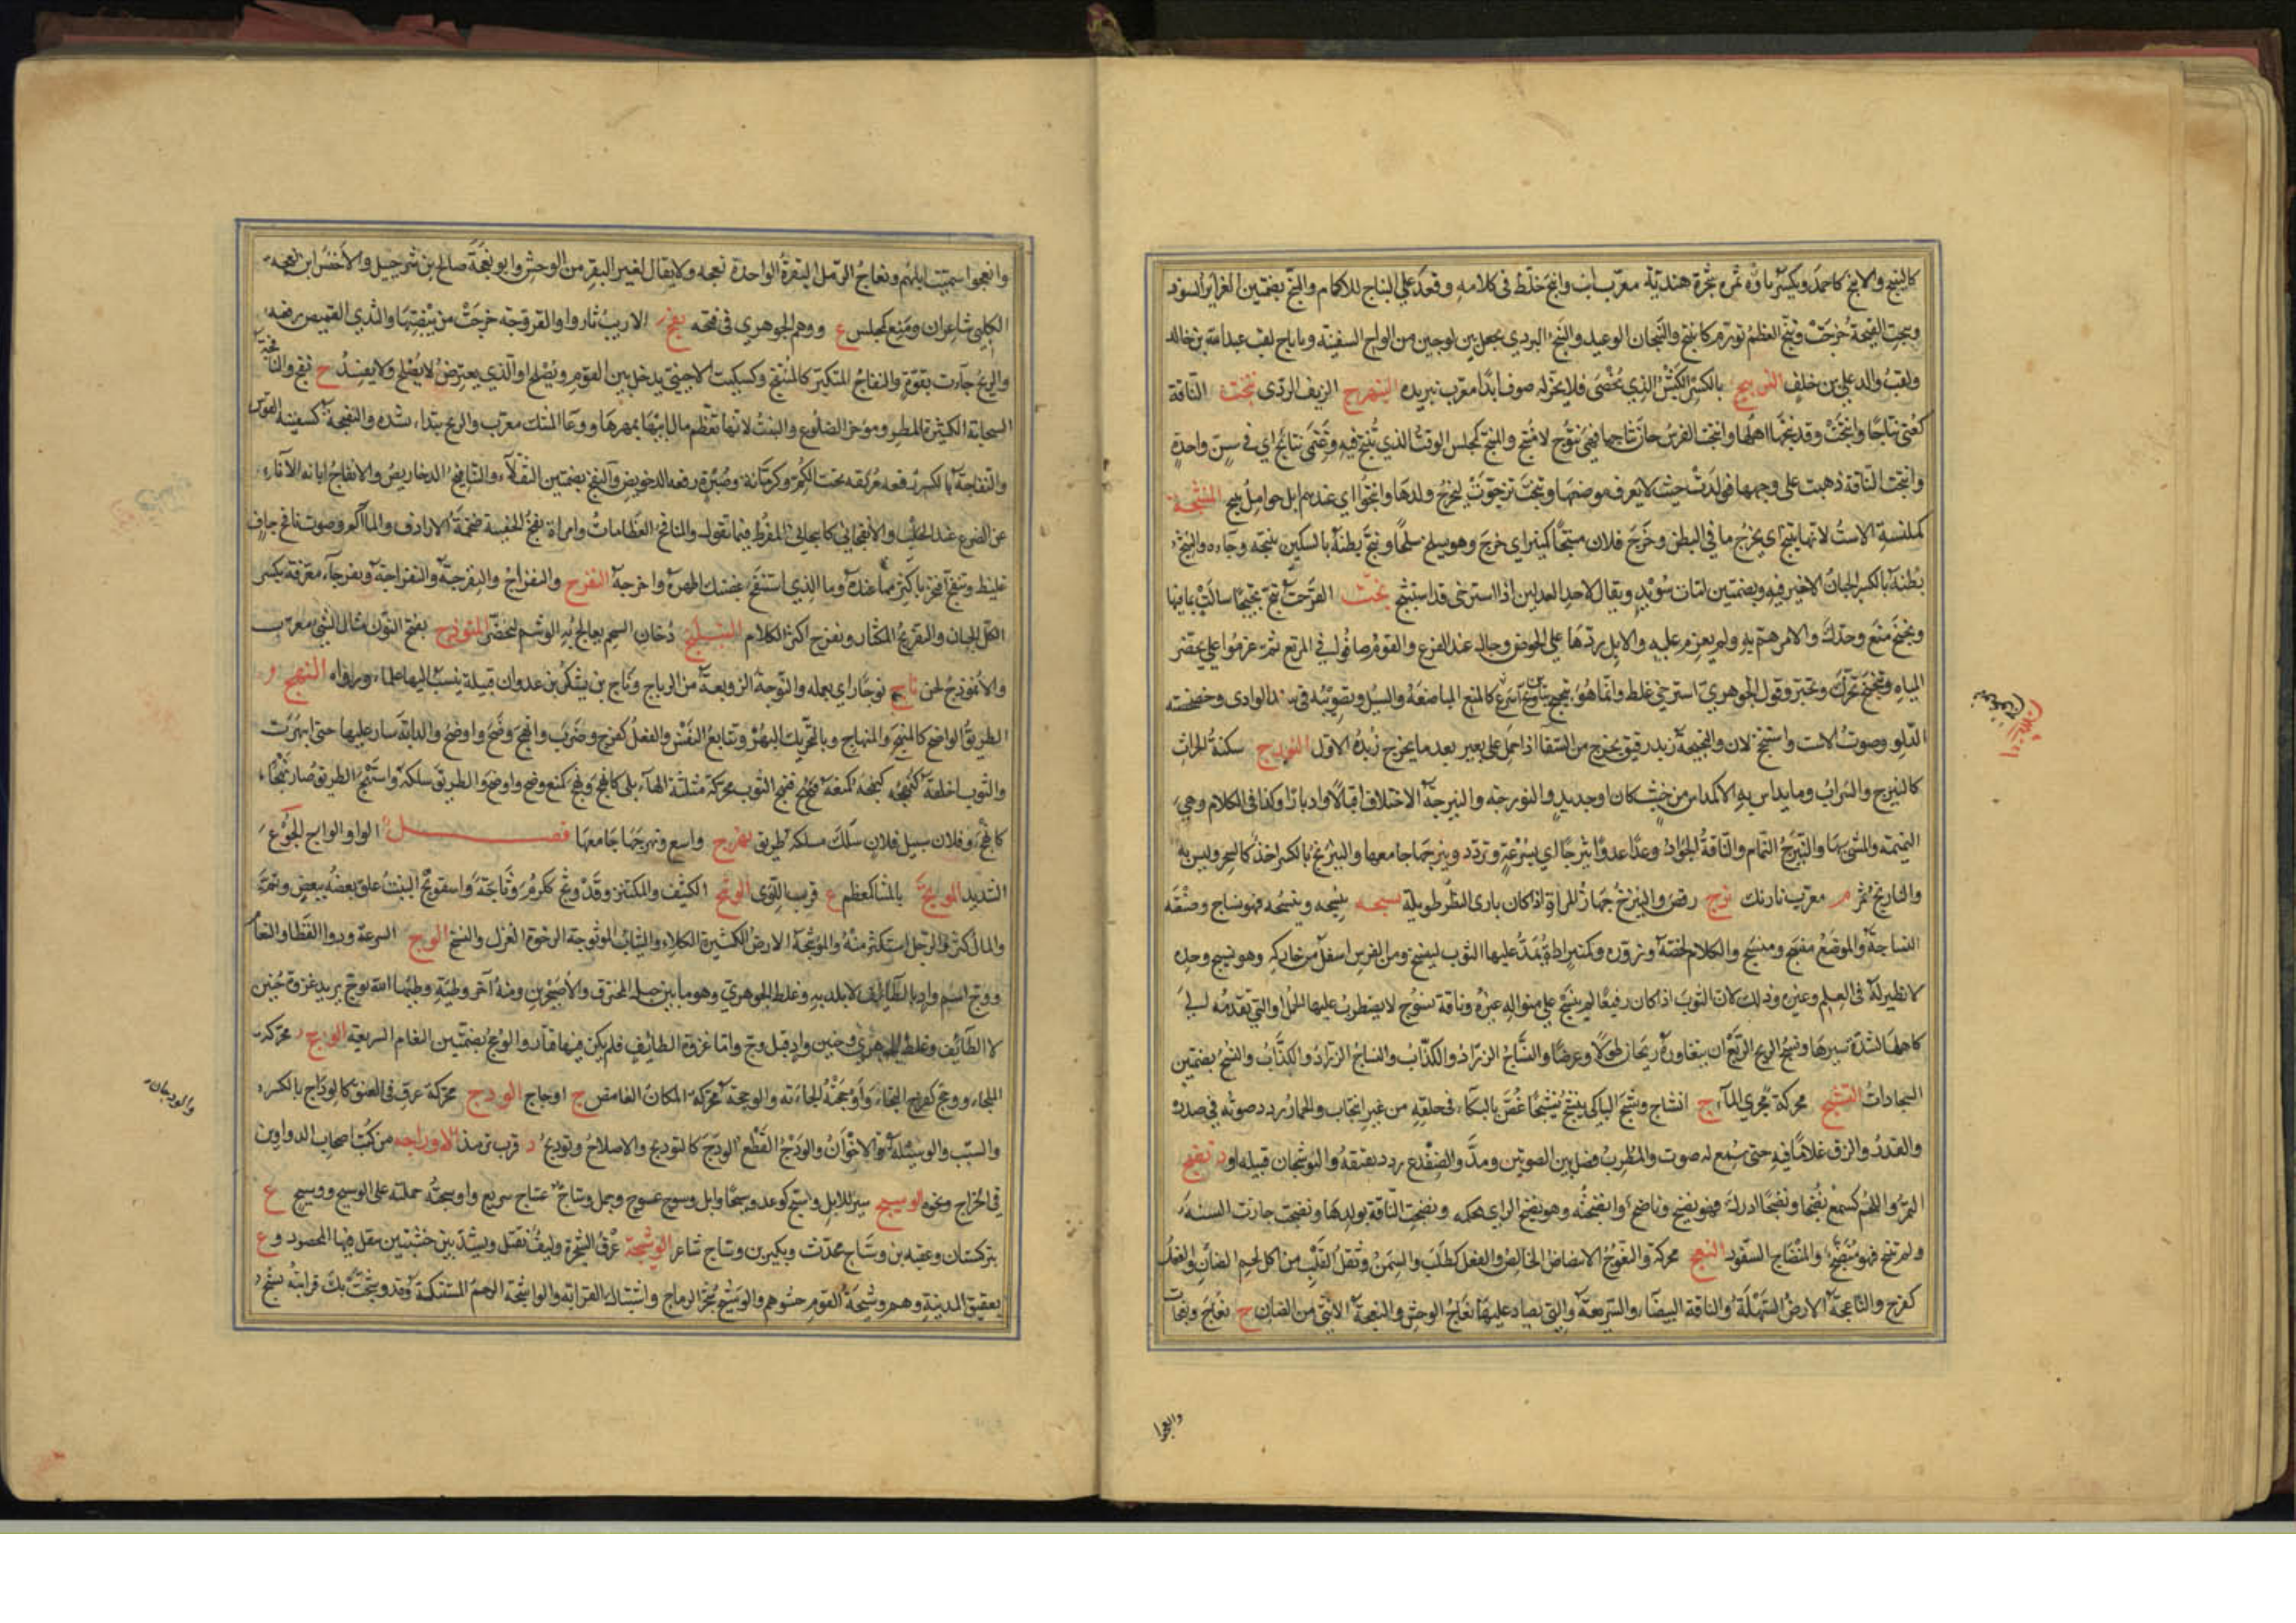 كالنبج والانبج كاحمد ويكسر باؤه ثمرة شجرة هندية معرب انب وانبج خلط فى كلامه وقعد على النباج للاكام والنبج بضمتين الغراير السود
ونبجت القبجة خرجت ونبج العظم تورم كانتبج والنبجان الوعيد والنبج البردي يجعل بين لوحين من الواح السفينة وناباج لقب عبدالله بن خالد
ولقب والد علي بن خلف النبريج بالكسر الكبش الذي يخصى فلا يجز له صوف ابدا معرب نبريده النبهرج الزيف الردى نتجت الناقة
كعنى نتاجا وانتجت وقد نتجها اهلها وانتجت الفرس حان نتاجها فهي نتوج لا منتج والمنتج كمجلس الوقت الذي تنتج فيه وغنمى نتائج اي في سن واحدة
وانتجت الناقة ذهبت على وجهها فولدت حيث لا يعرف موضعها وتنتجت تزحرت ليخرج ولدها وانتجوا اي عندهم ابل حوامل تنتج المنثجة
كملنسة الاست لانها تنثج اى تخرج ما فى البطن وخرج فلان منثجا كمنبر اي خرج وهو يسلح سلحا ونثج بطنه بالسكين ينثجه وجاءه والنثج
بطنه بالكسر الجبان لا خير فيه وبضمتين امات سويد ويقال لاحد العدلين اذا استرخى قد استنثج نجت القرحة تنج نجيجا سالت بما فيها
ونجنج منع وحرك والامر هم به ولم يعزم عليه والابل ردها على الحوض وجال عند الفزع والقوم صافوا في المرتع ثم عزموا على تحضر
المياه وتنجنج تحرك وتحير وقول الجوهري استرخى غلط وانما هو تبجبج نخج كالمنع المباضعة والسيل وتصويته فى سند الوادى وخضخضة
الدلو وصوت الاست واستنخج لان والنخيجة زبد رقيق يخرج من السقا اذا حمل على بعير بعد ما يخرج زبده الاول النورج سكنة الحراث
كالنيرج والسراب وما يداس به الاكداس من خشب كان او حديد والنورجة والنيرجة الاختلاف اقبالا وادبارا وكذا فى الكلام وهي
النميمة والمشي بها والنيرج النمام والناقة الجواد وعدا عدوا نيرجا اي بسرعة وتردد ونيرجها جامعها والنيرنج بالكسر اخذ كالسحر وليس به
والنارنج ثمر م معرب نارنك نزج رقص والنيزج جهاز المراة اذا كان نازى البظر طويله نسجه ينسجه وينسجه فهو نساج وصنعته
النساجة والموضع منسج ومنسج والكلام لخصه وزوره وكمنبر اداة يمد عليها الثوب لينسج ومن الفرس اسفل من حاركه وهو نسيج وحده
لا نظير له فى العلم وغيره وذلك لان الثوب اذا كان رفيعا لم ينسج على منواله غيره وناقة نسوج لا يضطرب عليها الحمل او التي تقدمه الى
كاهلها لشدة سيرها ونسج الريح الربع ان يتعاوره ريحان طولا وعرضا والنساج الزراد والكذاب والنساج الزراد والكذاب والنسج بضمتين
السجادات النشج محركة مجرى الماء ج انشاج ونشج الباكى ينشج نشيجا غص بالبكاء فى حلقه من غير انتحاب والحمار ردد صوته في صدره
والقدر والزق غلا ما فيه حتى سمع له صوت والمطرب فصل بين الصوتين ومد والضفدع ردد نقنقته والنوشجان قبيله او د نضج
التمر واللحم كسمع نضجا ونضجا ادرك فهو نضيج وناضج وانضجته وهو نضيج الراي محكمه ونضجت الناقة بولدها ونضجت جازت السنة
ولم تنتج فهو منضج والمنضاج السفود النعج محركة والنعوج الابيضاض الخالص والفعل كطلب والسمن وثقل القلب من اكل لحم الضان والفعل
كفرح والناعجة الارض السهلة والناقة البيضاء والسريعة والتي يصاد عليها نعاج الوحش والنعجة الانثى من الضان ج نعاج ونعجات
وانعجوا
وانعجوا سمنت ابلهم ونعاج الرمل البقرة الواحدة نعجه ولا يقال لغير البقر من الوحش وابو نعجة صالح بن شرحبيل والاخنس ابن نعجة
الكلبي شاعران ومنعج كمجلس ع ووهم الجوهري فى فتحه نفج الارنب ثار وا والفروجة خرجت من بيضتها والثدي القميص رفعه
والريح جاءت بقوة والنفاج المتكبر كالمنتفج وكسكيت الاجنبى يدخل بين القوم ويصلح او الذي يعترض لا يصلح ولا يفسد ج نفج والنافجة
السحابة الكثيرة المطر ومؤخر الضلوع والبنت لانها تعظم مال ابيها بمهرها ووعاء المسك معرب والريح تبتدا بشدة والنفيجة كسفينة القوس
والنفاجة بالكسر رقعة مربعة تحت الكم وكرمانة وصبرة رقعة الدخريص والنفج بضمتين الثقلاء والتنافيج الدخاريص والانفاج ابانة الاناء
عن الضرع عند الحلب والانفجانى كانبجانى المفرط فيما نقول والمنافج العظامات وامراة نفج الحقيبة ضخمة الارداف والماكم وصوت نافج جاف
غليظ وتنفج افتخر باكثر مما عنده وما الذي استنفج غضبك اظهره واخرجه النفرج والنفراج والنفرجة والنفراجة ونفرجاء معرفة بكسر
الكل الجبان والنفريج المكثار ونفرج اكثر الكلام النيلج دخان الشحم يعالج به الوشم ليخضر النموذج بفتح النون مثال الشئ معرب
والانموذج لحن ناج نوجا راى بعمله والنوجة الزوبعة من الرياح وناج بن يشكر بن عدوان قبيلة ينسب اليها علماء ورواة النهج
الطريق الواضح كالمنهج والمنهاج وبالتحريك البهر وتتابع النفس والفعل كفرح وضرب وانهج وضح واوضح والدابة سار عليها حتى انبهرت
والثوب اخلقه كنهجه كمنعه ونهج الثوب محركة مثلثة الهاء بلى كانهج ونهج كمنع وضح واوضح والطريق سلكه واستنهج الطريق صار نهجا
كانهج وفلان سبيل فلان سلك مسلكه طريق نهرج واسع ونهرجها جامعها فصل الواو الوابج الجوع
الشديد الوبج بالمثناه كمعظم ع قرب اللوى الوثج الكثيف والمكتنز وقد وثج ككرم وثاجة واستوثج النبت علق بعضه ببعض وتم
والمال كثر والرجل استكثر منه والموثجة الارض الكثيرة الكلاء والثياب الموثوجة الرخوة الغزل والنسج الوج السرعة ودواء والقطا والنعام
ووج اسم واد بالطائف لا بلد به وغلط الجوهري وهو ما بين جبلي المحترق والاحيحدين ومنه آخر وطئة وطئها الله بوج يريد غزوة حنين
لا الطائف وغلط الجوهري وحنين واد قبل وج واما غزوة الطائف فلم يكن فيها قتال والوجج بضمتين النعام السريعة الوحج محركة
الملجاء ووحج كفرح التجاء واوحجته الجاءته والوحجة محركة المكان الغامض ج اوحاج الودج محركة عرق فى العنق كالوداج بالكسر
والسبب والوسيلة والاخوان والودج القطع الودج كالتوديج والاصلاح وتوديج د قرب ترمذ الاوراجه من كتب اصحاب الدواوين
فى الخراج ونحوه الوسيج سير للابل وسج كوعد وسيجا وابل وسوج عسوج وجمل وساج عساج سريع واوسجته حملته على الوسيج ووسيج ع
بتركستان وعقبة بن وساج محدث وبكير بن وساج شاعر الوشيجة عرق الشجرة وليف يفتل ويشد بين خشبتين ينقل فيها المحصود وع
بعقيق المدينة وهم وشيجة القوم حشوهم والوشيج شجر الرماح واشتباك القرابة والواشجة الرحم المشتبكة وقد وشجت بك قرابته تشج
والودجان